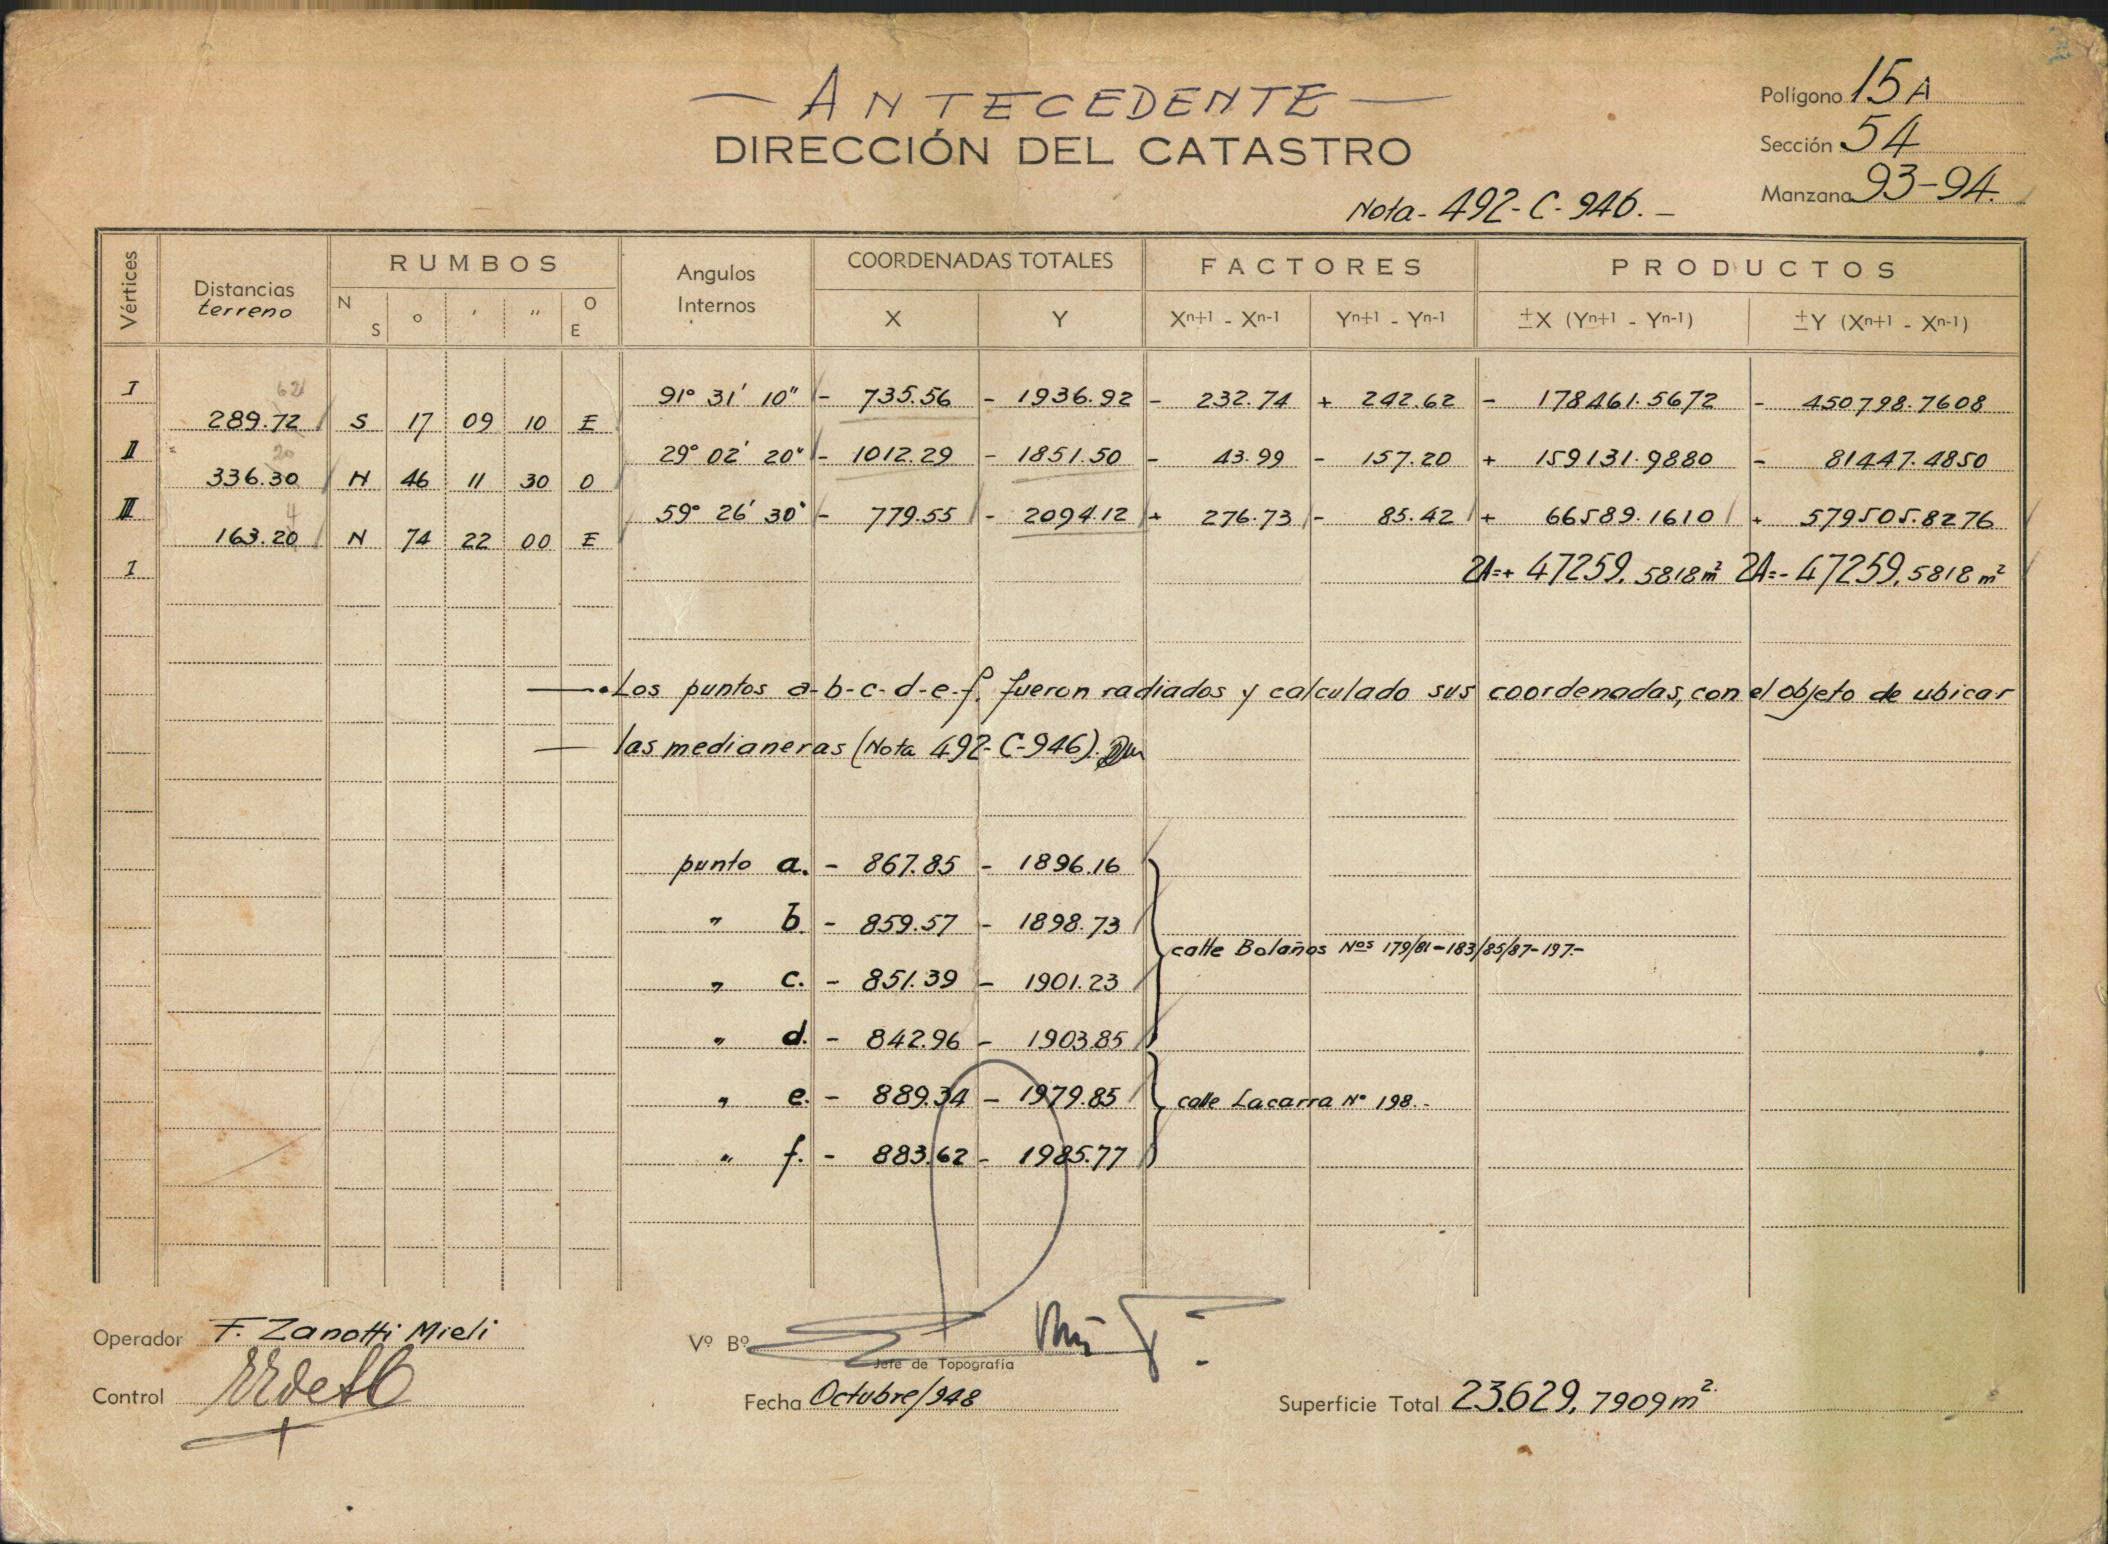 — ANTECEDENTE —
DIRECCIÓN DEL CATASTRO
Polígono 15 A
Sección 54
Manzana 93-94.
Nota- 492-C-946.-
Vértices Distancias terreno RUMBOS Angulos Internos COORDENADAS TOTALES FACTORES PRODUCTOS
N S ° ' " O E X Y Xn+1 - Xn-1 Yn+1 - Yn-1 ±X (Yn+1 - Yn-1) ±Y (Xn+1 - Xn-1)
I 91° 31' 10" - 735.56 - 1936.92 - 232.74 + 242.62 - 178461.5672 - 450798.7608
62
289.72 S 17 09 10 E
II 29° 02' 20" - 1012.29 - 1851.50 - 43.99 - 157.20 + 159131.9880 - 81447.4850
20
336.30 N 46 11 30 O
III 59° 26' 30" - 779.55 - 2094.12 + 276.73 - 85.42 + 66589.1610 + 579505.8276
4
163.20 N 74 22 00 E
I 2A=+ 47259.5818 m² 2A=- 47259.5818 m²
Los puntos a-b-c-d-e-f. fueron radiados y calculado sus coordenadas, con el objeto de ubicar
las medianeras (Nota 492-C-946).
punto a. - 867.85 - 1896.16
" b. - 859.57 - 1898.73
calle Bolaños Nos 179/81-183/85/87-197.-
" c. - 851.39 - 1901.23
" d. - 842.96 - 1903.85
" e. - 889.34 - 1979.85 calle Lacarra N° 198.-
" f. - 883.62 - 1985.77
Operador F. Zanotti Mieli
Vº Bº
Jefe de Topografía
Control
Fecha Octubre/948
Superficie Total 23.629,7909 m²